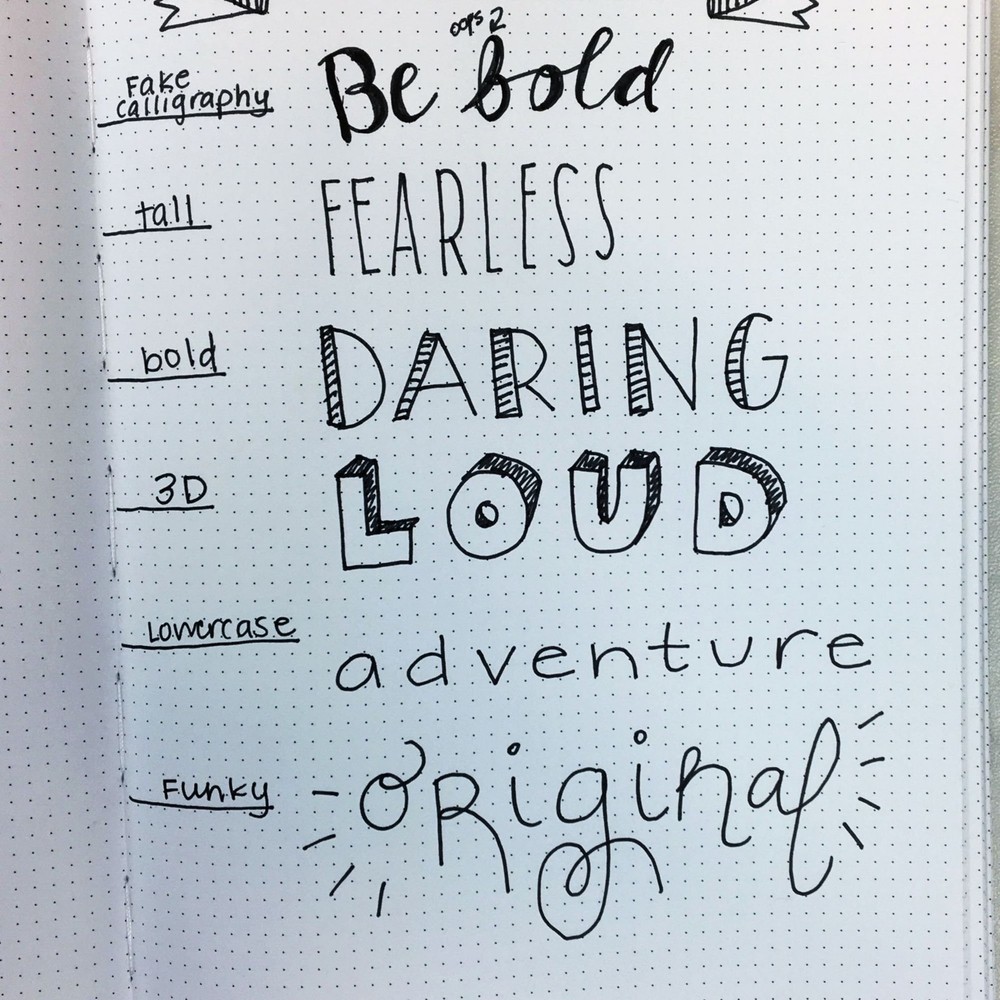 oops
Fake calligraphy Be bold
tall FEARLESS
bold DARING
3D LOUD
Lowercase adventure
Funky original